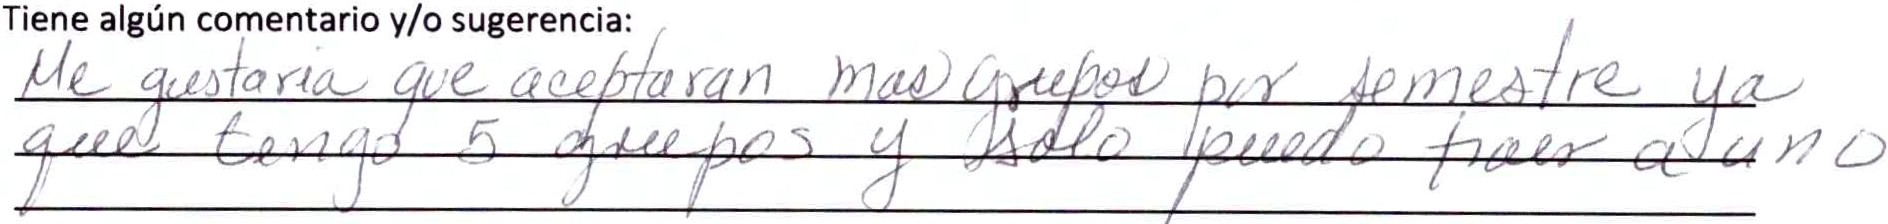 Tiene algún comentario y/o sugerencia:
Me gustaria que aceptaran mas grupos por semestre ya
que tengo 5 grupos y solo puedo traer a uno